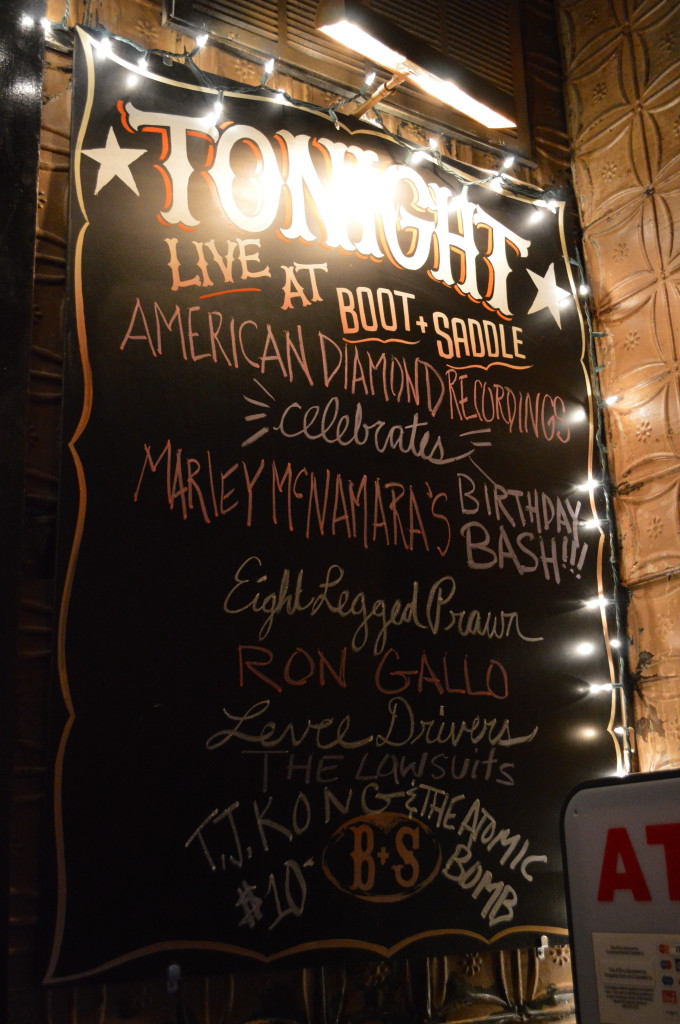 TONIGHT
LIVE AT BOOT + SADDLE
AMERICAN DIAMOND RECORDINGS
celebrates
MARLEY McNAMARA'S BIRTHDAY
BASH!!!
Eight Legged Prawn
RON GALLO
Levee Drivers
THE LAWSUITS
T.J. KONG & THE ATOMIC
BOMB
$10-
B+S
AT